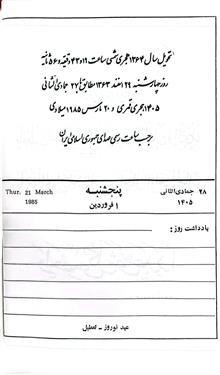 تحویل سال ۱۳۶۴ هجری شمسی ساعت ۱۹ و ۴۳ دقیقه و ۵۶ ثانیه
روز چهارشنبه ۲۹ اسفند ۱۳۶۳ مطابق با ۲۷ جمادی الثانی
۱۴۰۵ هجری قمری و ۲۰ مارس ۱۹۸۵ میلادی
بر حسب ساعت رسمی جمهوری اسلامی ایران
۲۸ جمادی الثانی پنجشنبه Thur. 21 March
۱۴۰۵ ۱ فروردین 1985
یادداشت روز :
عید نوروز - تعطیل